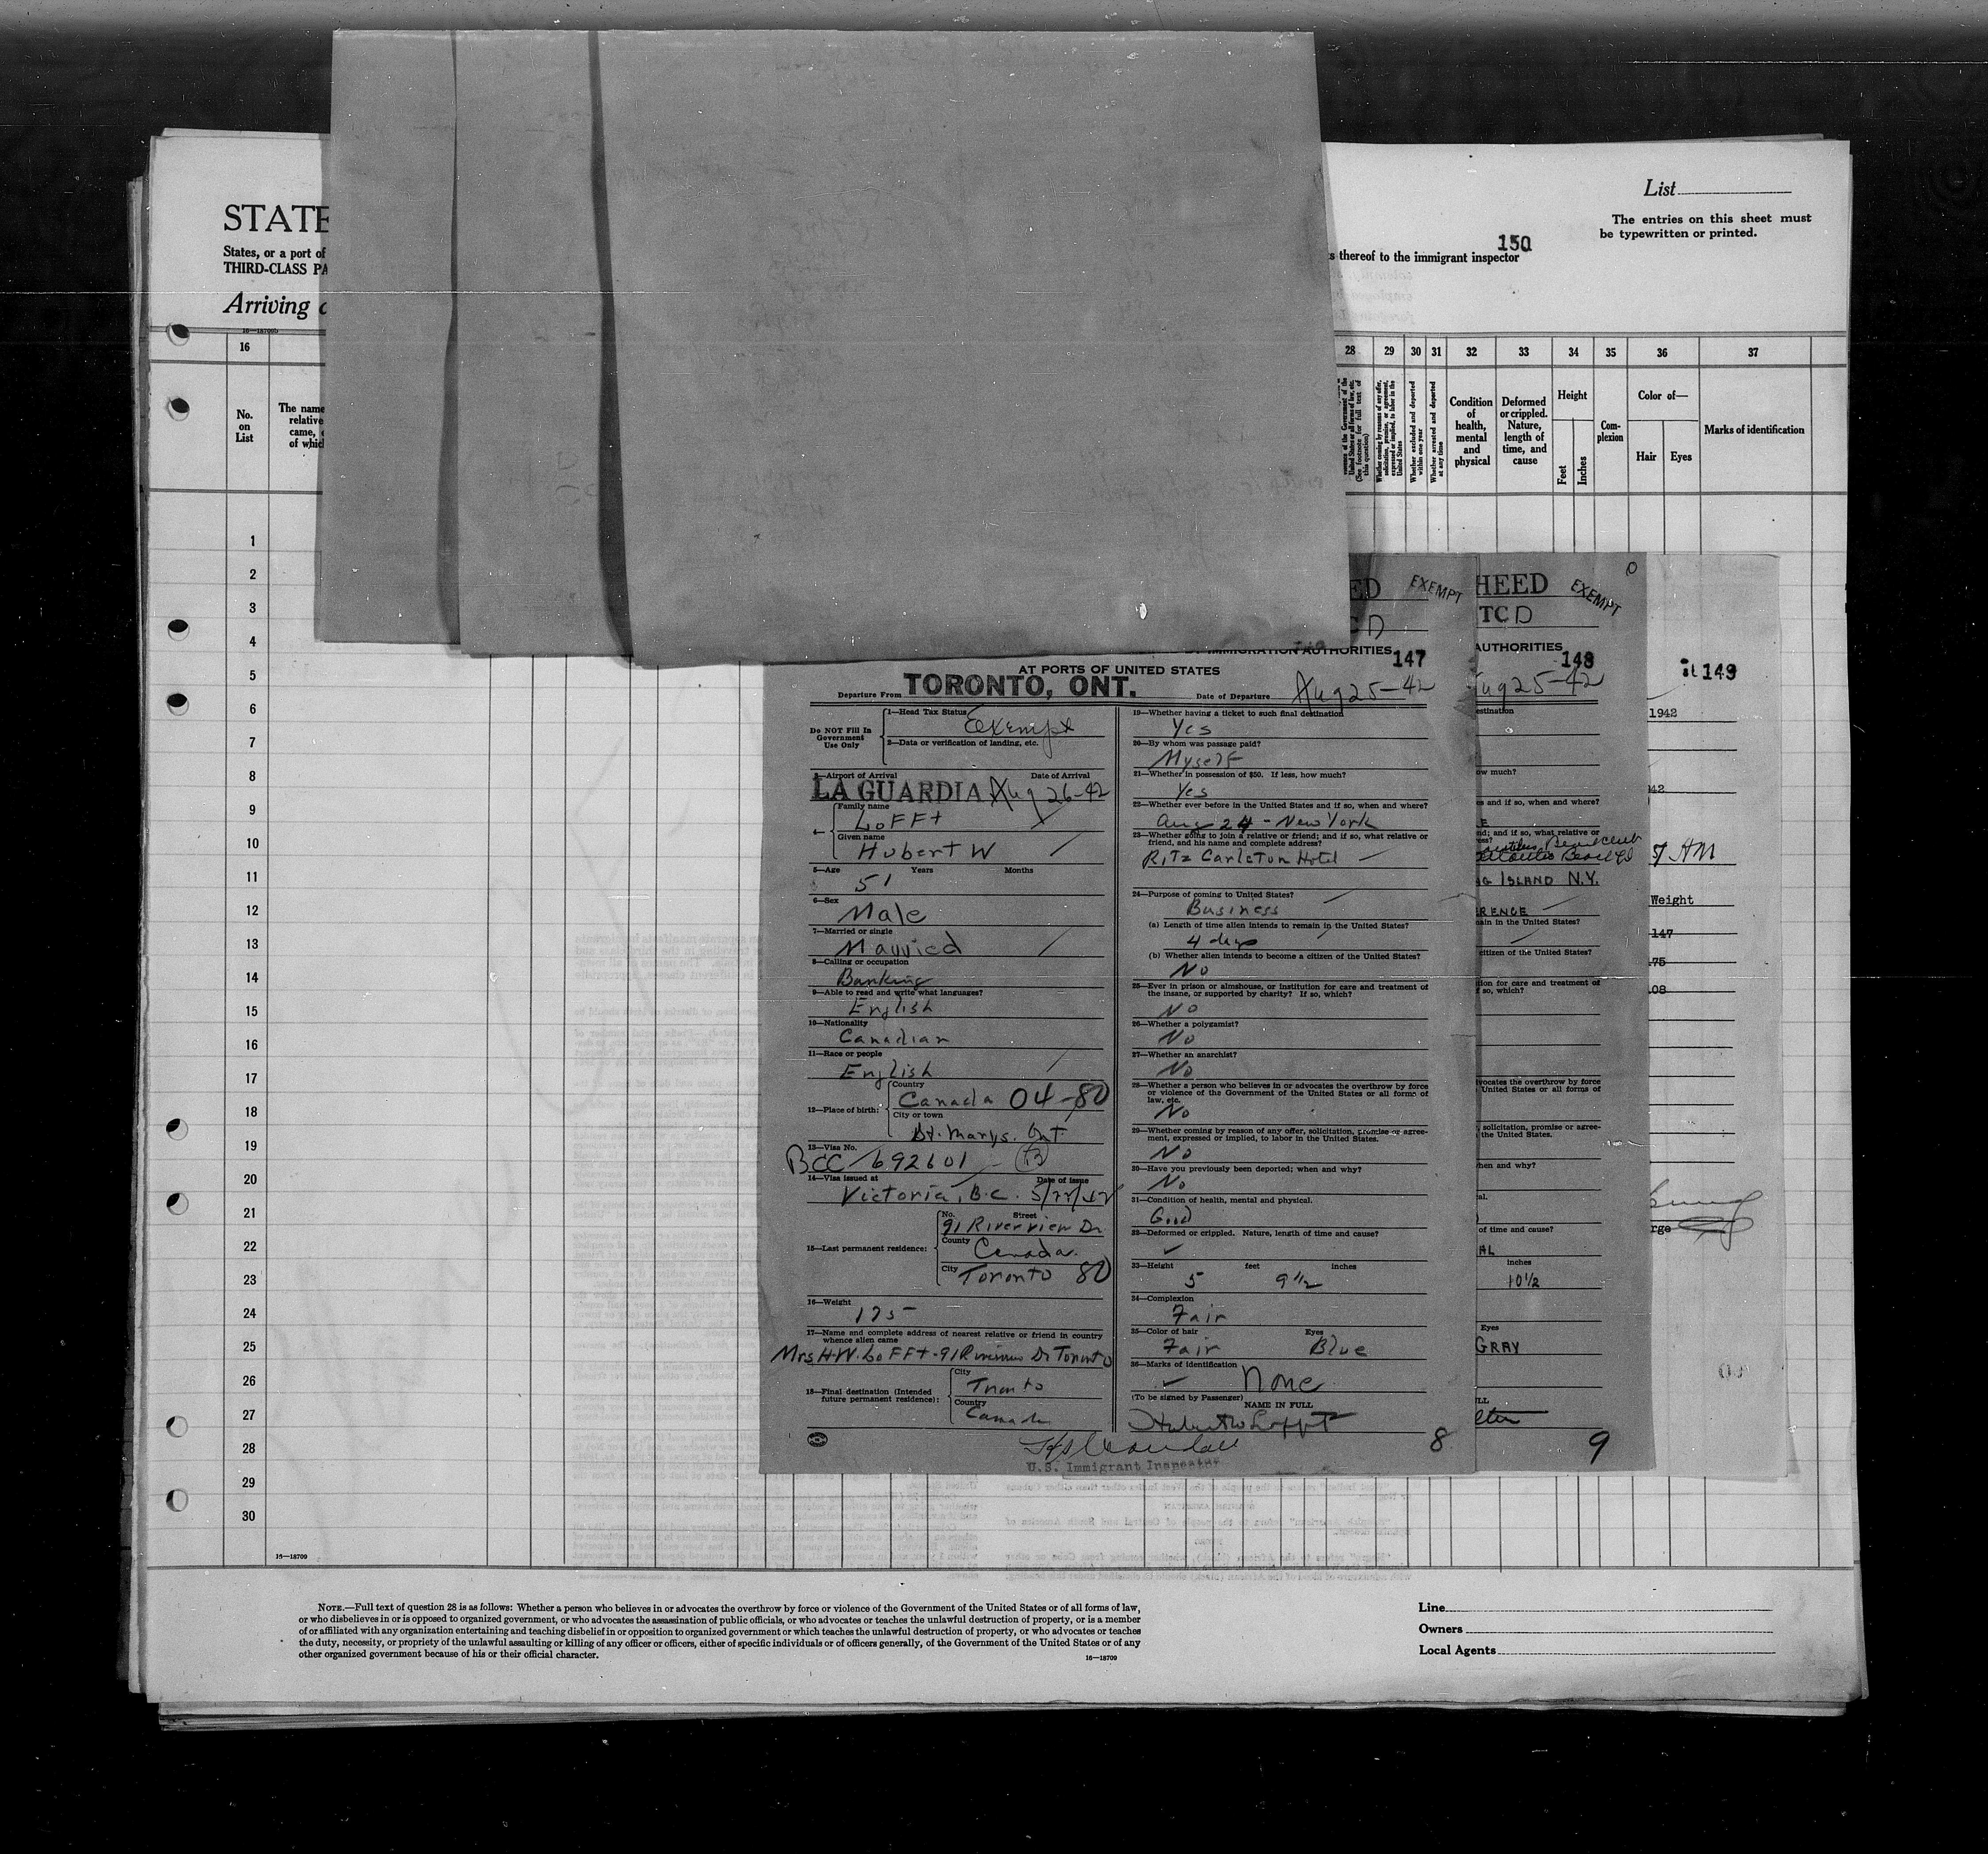 List
The entries on this sheet must
be typewritten or printed.
150
STATE
States, or a port of
THIRD-CLASS PA
s thereof to the immigrant inspector
Arriving
16—18709b
16
28 29 30 31 32 33 34 35 36 37
No.
on
List
The name
relative
came,
of whic
United States or all forms of law, etc.
(See footnote for full text of
this question)
Whether coming by reason of any offer,
solicitation, promise, or agreement,
expressed or implied, to labor in the
United States
Whether excluded and deported
within one year
Whether arrested and deported
at any time
Condition
of
health,
mental
and
physical
Deformed
or crippled.
Nature,
length of
time, and
cause
Height
Feet
Inches
Com-
plexion
Color of—
Hair
Eyes
Marks of identification
1
2
3
4
5
6
7
8
9
10
11
12
13
14
15
16
17
18
19
20
21
22
23
24
25
26
27
28
29
30
ED
EXEMPT
CD
IMMIGRATION AUTHORITIES
147
AT PORTS OF UNITED STATES
Departure From TORONTO, ONT.
Date of Departure Aug 25-42
Do NOT Fill In
Government
Use Only
1—Head Tax Status
Exempt
2—Data or verification of landing, etc.
3—Airport of Arrival Date of Arrival
LA GUARDIA Aug 26-42
4—
Family name
LoFFt
Given name
Hubert W
5—Age Years Months
51
6—Sex
Male
7—Married or single
Married
8—Calling or occupation
Banking
9—Able to read and write what languages?
English
10—Nationality
Canadian
11—Race or people
English
12—Place of birth:
Country
Canada 04-80
City or town
St. Marys. Ont.
13—Visa No.
BCC 692601
14—Visa issued at Date of issue
Victoria, B.C. 5/22/42
15—Last permanent residence:
No. Street
91 Riverview Dr
County
Canada
City
Toronto 80
16—Weight
175
17—Name and complete address of nearest relative or friend in country
whence alien came
Mrs H.W. LoFFt - 91 Riverview Dr Toronto
18—Final destination (Intended
future permanent residence):
City
Toronto
Country
Canada
19—Whether having a ticket to such final destination
Yes
20—By whom was passage paid?
Myself
21—Whether in possession of $50. If less, how much?
Yes
22—Whether ever before in the United States and if so, when and where?
Aug 24 - New York
23—Whether going to join a relative or friend; and if so, what relative or
friend, and his name and complete address?
Ritz Carleton Hotel
24—Purpose of coming to United States?
Business
(a) Length of time alien intends to remain in the United States?
4 days
(b) Whether alien intends to become a citizen of the United States?
No
25—Ever in prison or almshouse, or institution for care and treatment of
the insane, or supported by charity? If so, which?
No
26—Whether a polygamist?
No
27—Whether an anarchist?
No
28—Whether a person who believes in or advocates the overthrow by force
or violence of the Government of the United States or all forms of
law, etc.
No
29—Whether coming by reason of any offer, solicitation, promise or agree-
ment, expressed or implied, to labor in the United States.
No
30—Have you previously been deported; when and why?
No
31—Condition of health, mental and physical.
Good
32—Deformed or crippled. Nature, length of time and cause?
33—Height feet inches
5 9 1/2
34—Complexion
Fair
35—Color of hair Eyes
Fair Blue
36—Marks of identification
None
(To be signed by Passenger)
NAME IN FULL
Hubert W Lofft
U.S. Immigrant Inspector
8
HEED
EXEMPT
TCD
AUTHORITIES
148
Aug 25-42
estination
ow much?
es and if so, when and where?
end; and if so, what relative or
Beach club
Atlantic Beach
ISLAND N.Y.
ERENCE
ain in the United States?
citizen of the United States?
tion for care and treatment of
so, which?
vocates the overthrow by force
United States or all forms of
, solicitation, promise or agree-
the United States.
hen and why?
al.
of time and cause?
AL
inches
10 1/2
Eyes
GRAY
ULL
9
149
1942
AM
Weight
147
175
08
rge
16—18709
NOTE.—Full text of question 28 is as follows: Whether a person who believes in or advocates the overthrow by force or violence of the Government of the United States or of all forms of law,
or who disbelieves in or is opposed to organized government, or who advocates the assassination of public officials, or who advocates or teaches the unlawful destruction of property, or is a member
of or affiliated with any organization entertaining and teaching disbelief in or opposition to organized government or which teaches the unlawful destruction of property, or who advocates or teaches
the duty, necessity, or propriety of the unlawful assaulting or killing of any officer or officers, either of specific individuals or of officers generally, of the Government of the United States or of any
other organized government because of his or their official character.
16—18709
Line
Owners
Local Agents